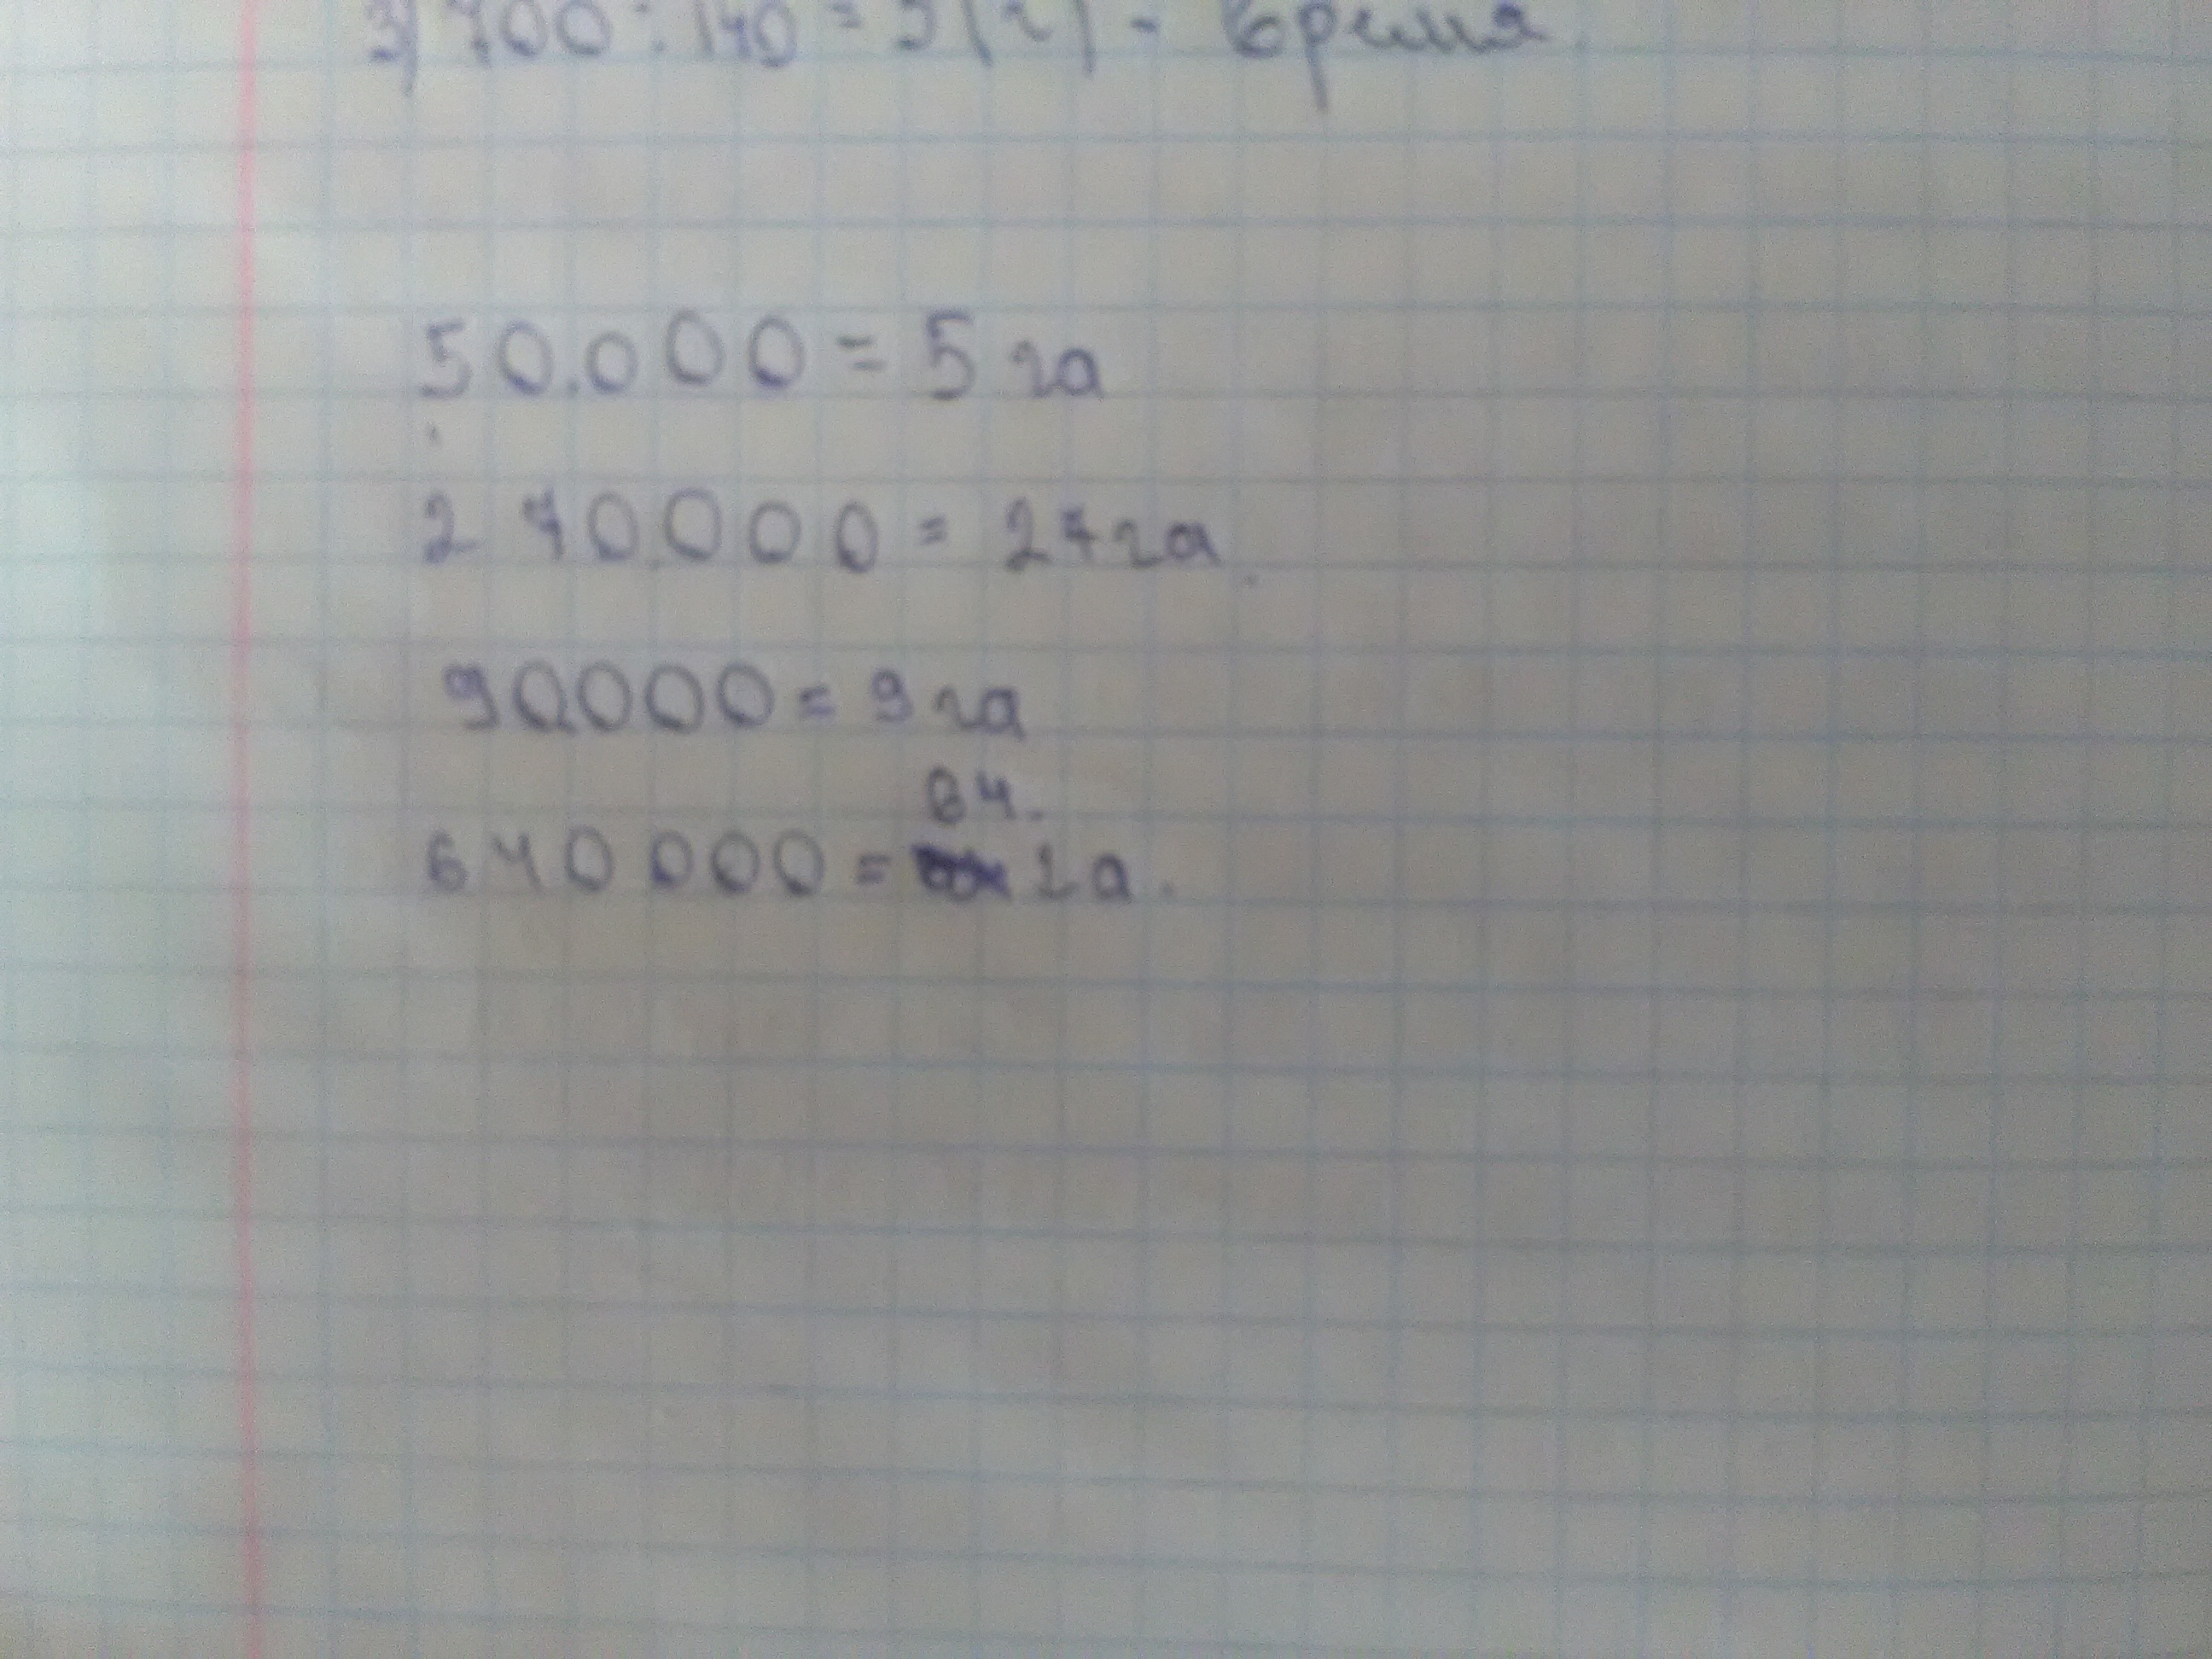 3) 700 : 140 = 5 (ч) - время
50.000 = 5 га
270000 = 27 га.
90000 = 9 га
64.
640000 = га.